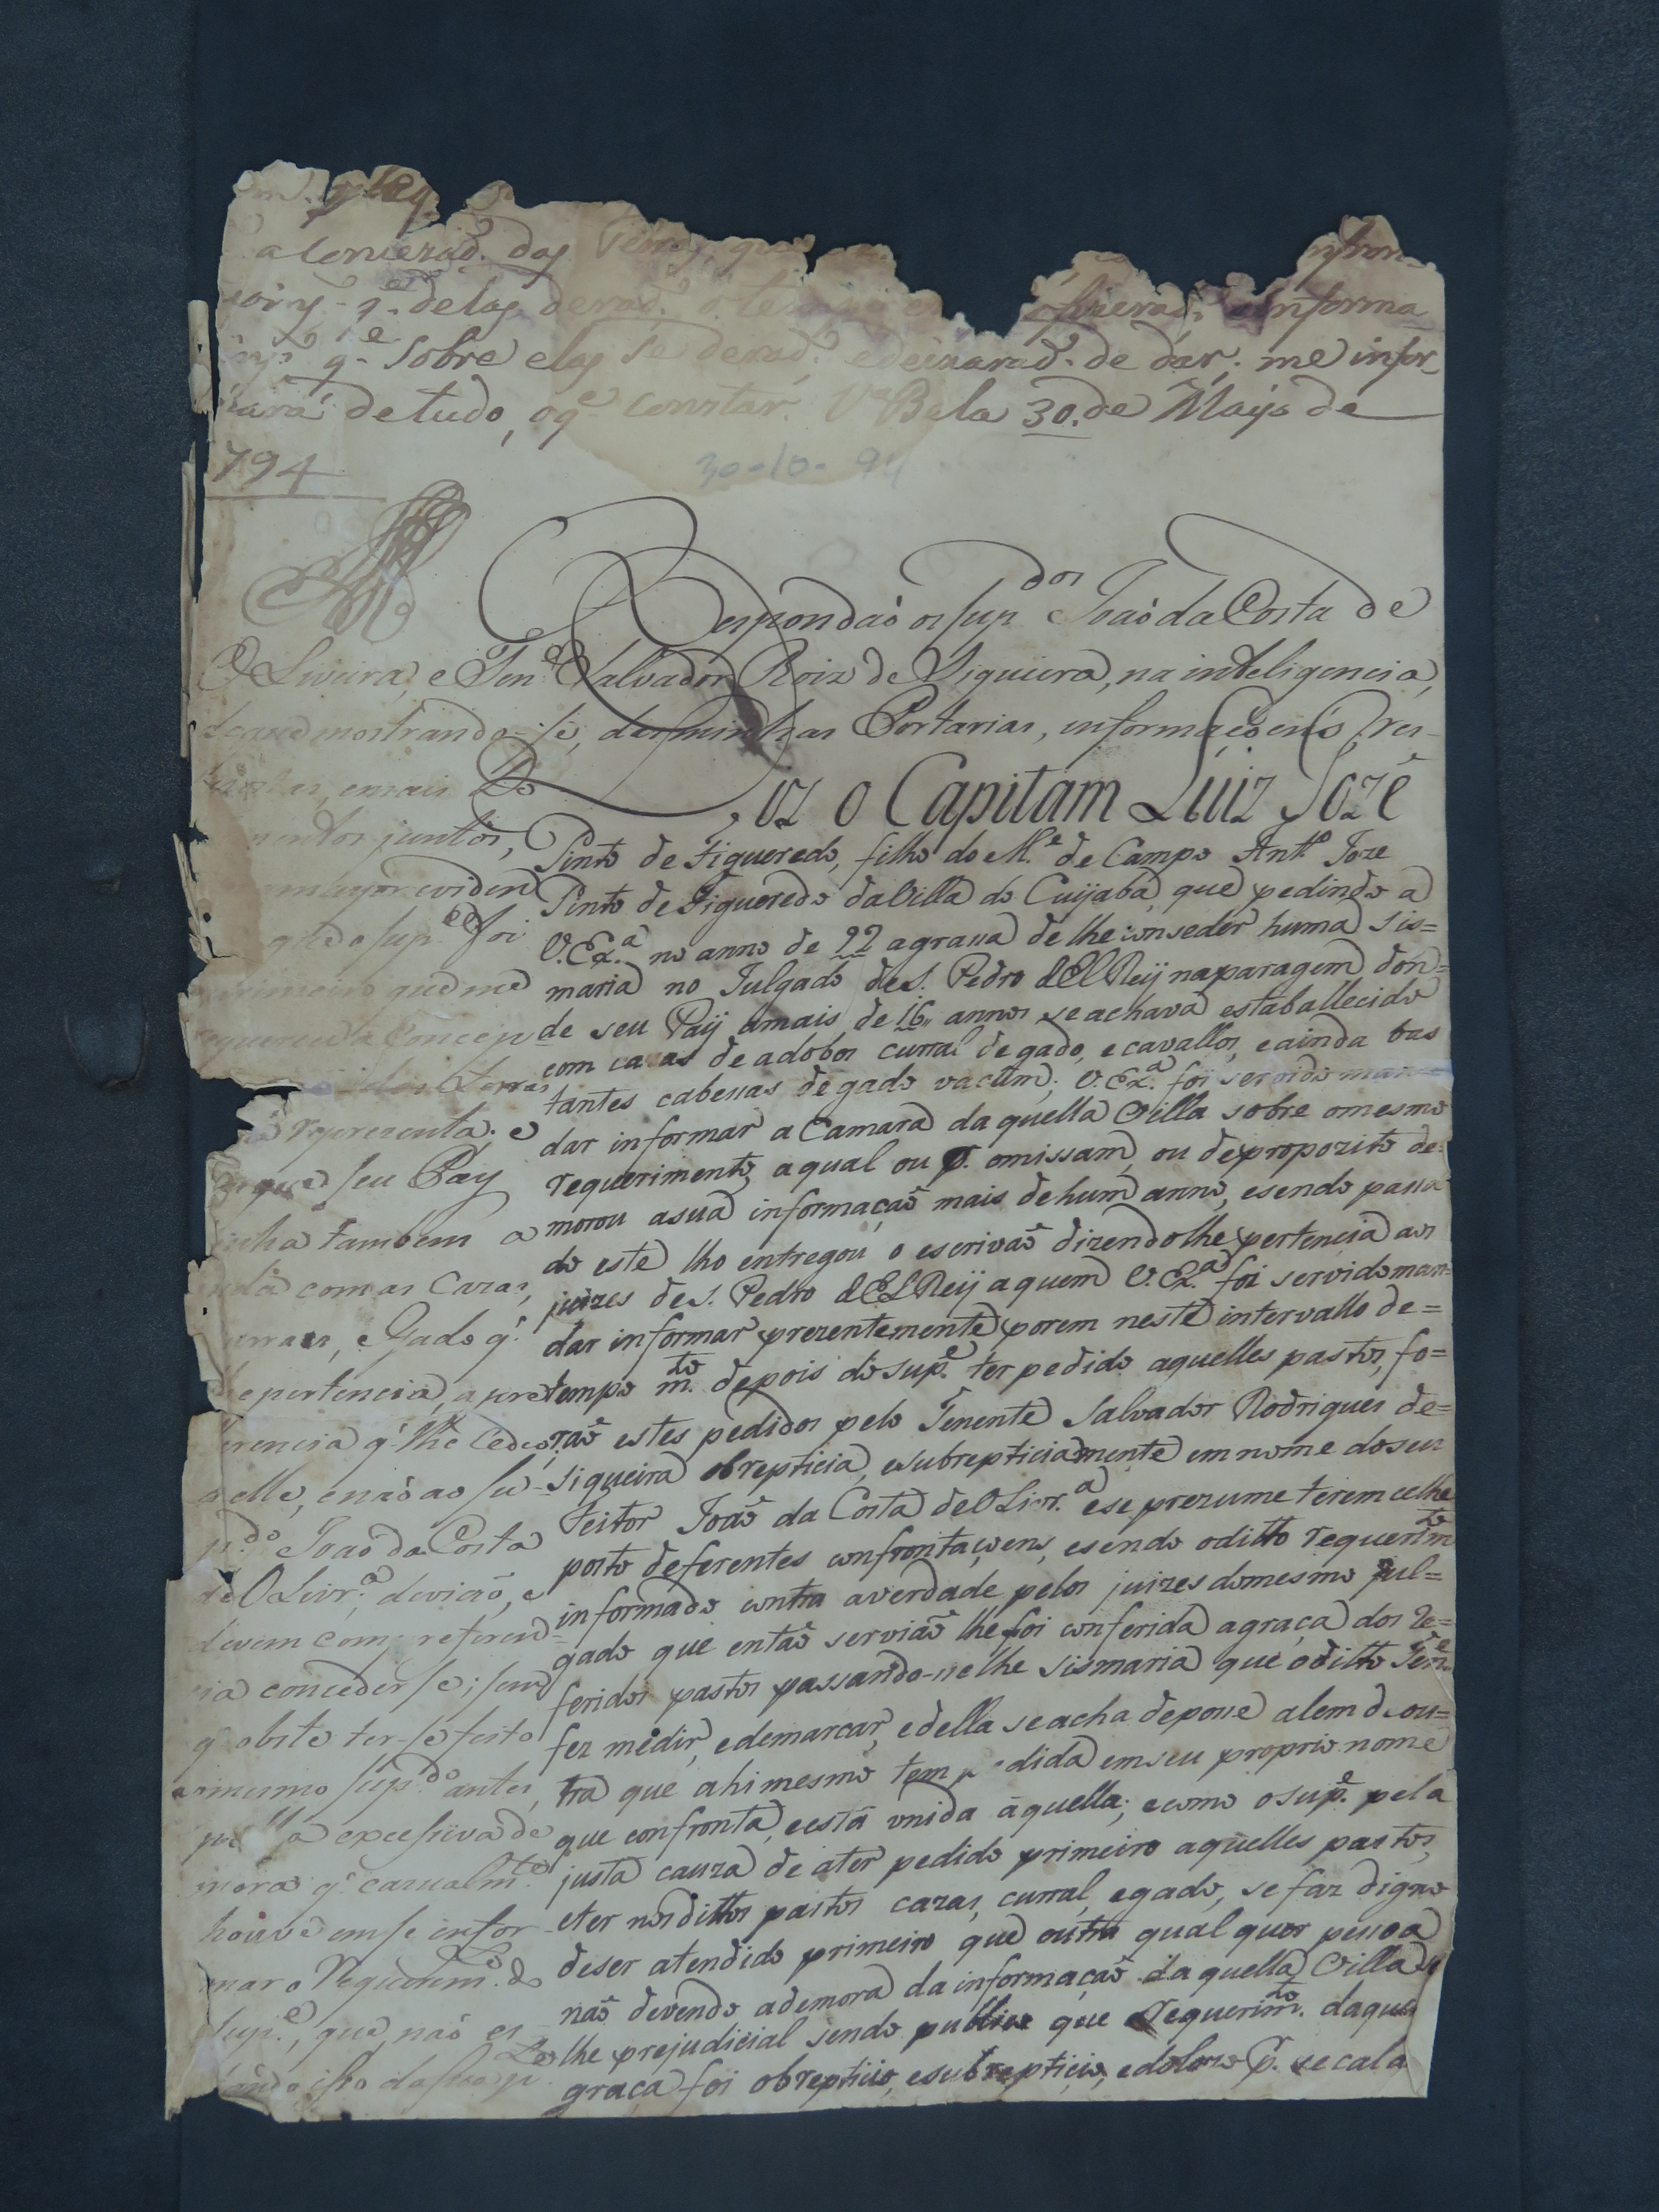 a Conceraõ. das Terras, que
q.^e delas deraõ. o tem fizeraõ. informa
q.^e sobre elas se deraõ. e deixaraõ. de dar; me infor_
mará de tudo, o q^e constar. V^a Bela 30. de Mayo de
794
30-10-94
Respondaõ os Sup^dos Joaõ da Costa de
O Liveira, e Ten^e Salvador Roiz de Siqueira, na inteligencia,
de que mostrando-se, das minhas Portarias, informaçoens, Res-
postas, e mais Do
cumentos juntos,
mayor eviden
que o Sup.^e foi
primeiro que me
requereu a Conceçaõ
das Terras
representa; e
que seu Pay
tinha tambem a
inda com as Cazas,
Curraes, e Gado q.^e
lhe pertencia, a pre
ferencia q.^e lhe cedeo,
a elle, e naõ ao Su-
p.^do Joaõ da Costa
de O Livr.^a, deviaõ, e
devem com preferen=
cia conceder se; sem
q.^e obste ter-se feito
o mesmo Sup.^do antes,
pella excessiva de
mora q.^e cazualm.^te
houve em se infor-
mar o Requerim.^to do
Sup.^e, que naõ es
tando isso da sua p
Diz o Capitam Luiz Jozê
Pinto de Figueredo, filho do M.^e de Campo Ant.^o Joze
Pinto de Figueredo da Villa do Cuijabá, que pedindo a
V. Ex.^a no anno de 92 agrassa de lhe conseder huma sis=
maria no Julgado de S. Pedro d'El Reij na paragem don=
de seu Paij amais de 16,, annos se achava estaballecido
com cazas de adobos curral de gado, e cavallos, e ainda bas
tantes cabessas de gado vacúm; V. Ex.^a foi servido man=
dar informar a Camara daquella Villa sobre o mesmo
requerimento, a qual ou p. omissam, ou de propozito de=
morou asua informaçaõ mais de hum anno, e sendo passa
do este lho entregou o escrivaõ dizendo lhe pertencia aos
juizes de S. Pedro d'El Reij a quem V. Ex.^a foi servido man=
dar informar prezentemente, porem neste intervallo de=
tempo m.^to depois do sup.^e ter pedido aquelles pastos, fo=
raõ estes pedidos pelo Tenente Salvador Rodrigues de=
Siqueira obrepticia, e subrepticiamente em nome do seu
Feitor Joaõ da Costa de O Livr.^a e se prezume terem ce lhe
posto deferentes confrontaçoens, e sendo o ditto requerim^to
informado contra averdade pelos juizes do mesmo Jul=
gado que entaõ serviaõ lhe foi conferida agraça dos re=
feridos pastos passando-se lhe sismaria que o ditto Ten^e
fez medir, e demarcar, e della se acha de posse alem de ou=
tra que ahi mesmo tem pedida em seu proprio nome
que confronta, e está unida áquella; e como o sup.^e pela
justa cauza de ater pedido primeiro aquelles pastos,
e ter nos dittos pastos cazas, curral, e gado, se faz digno
de ser atendido primeiro que outra qual quer pessoa
naõ devendo ademora da informaçaõ daquella Villa se
lhe prejudicial sendo publico que o requerim.^to daque
graça foi obrepticio, e subrepticio, e dolozo p. se cala